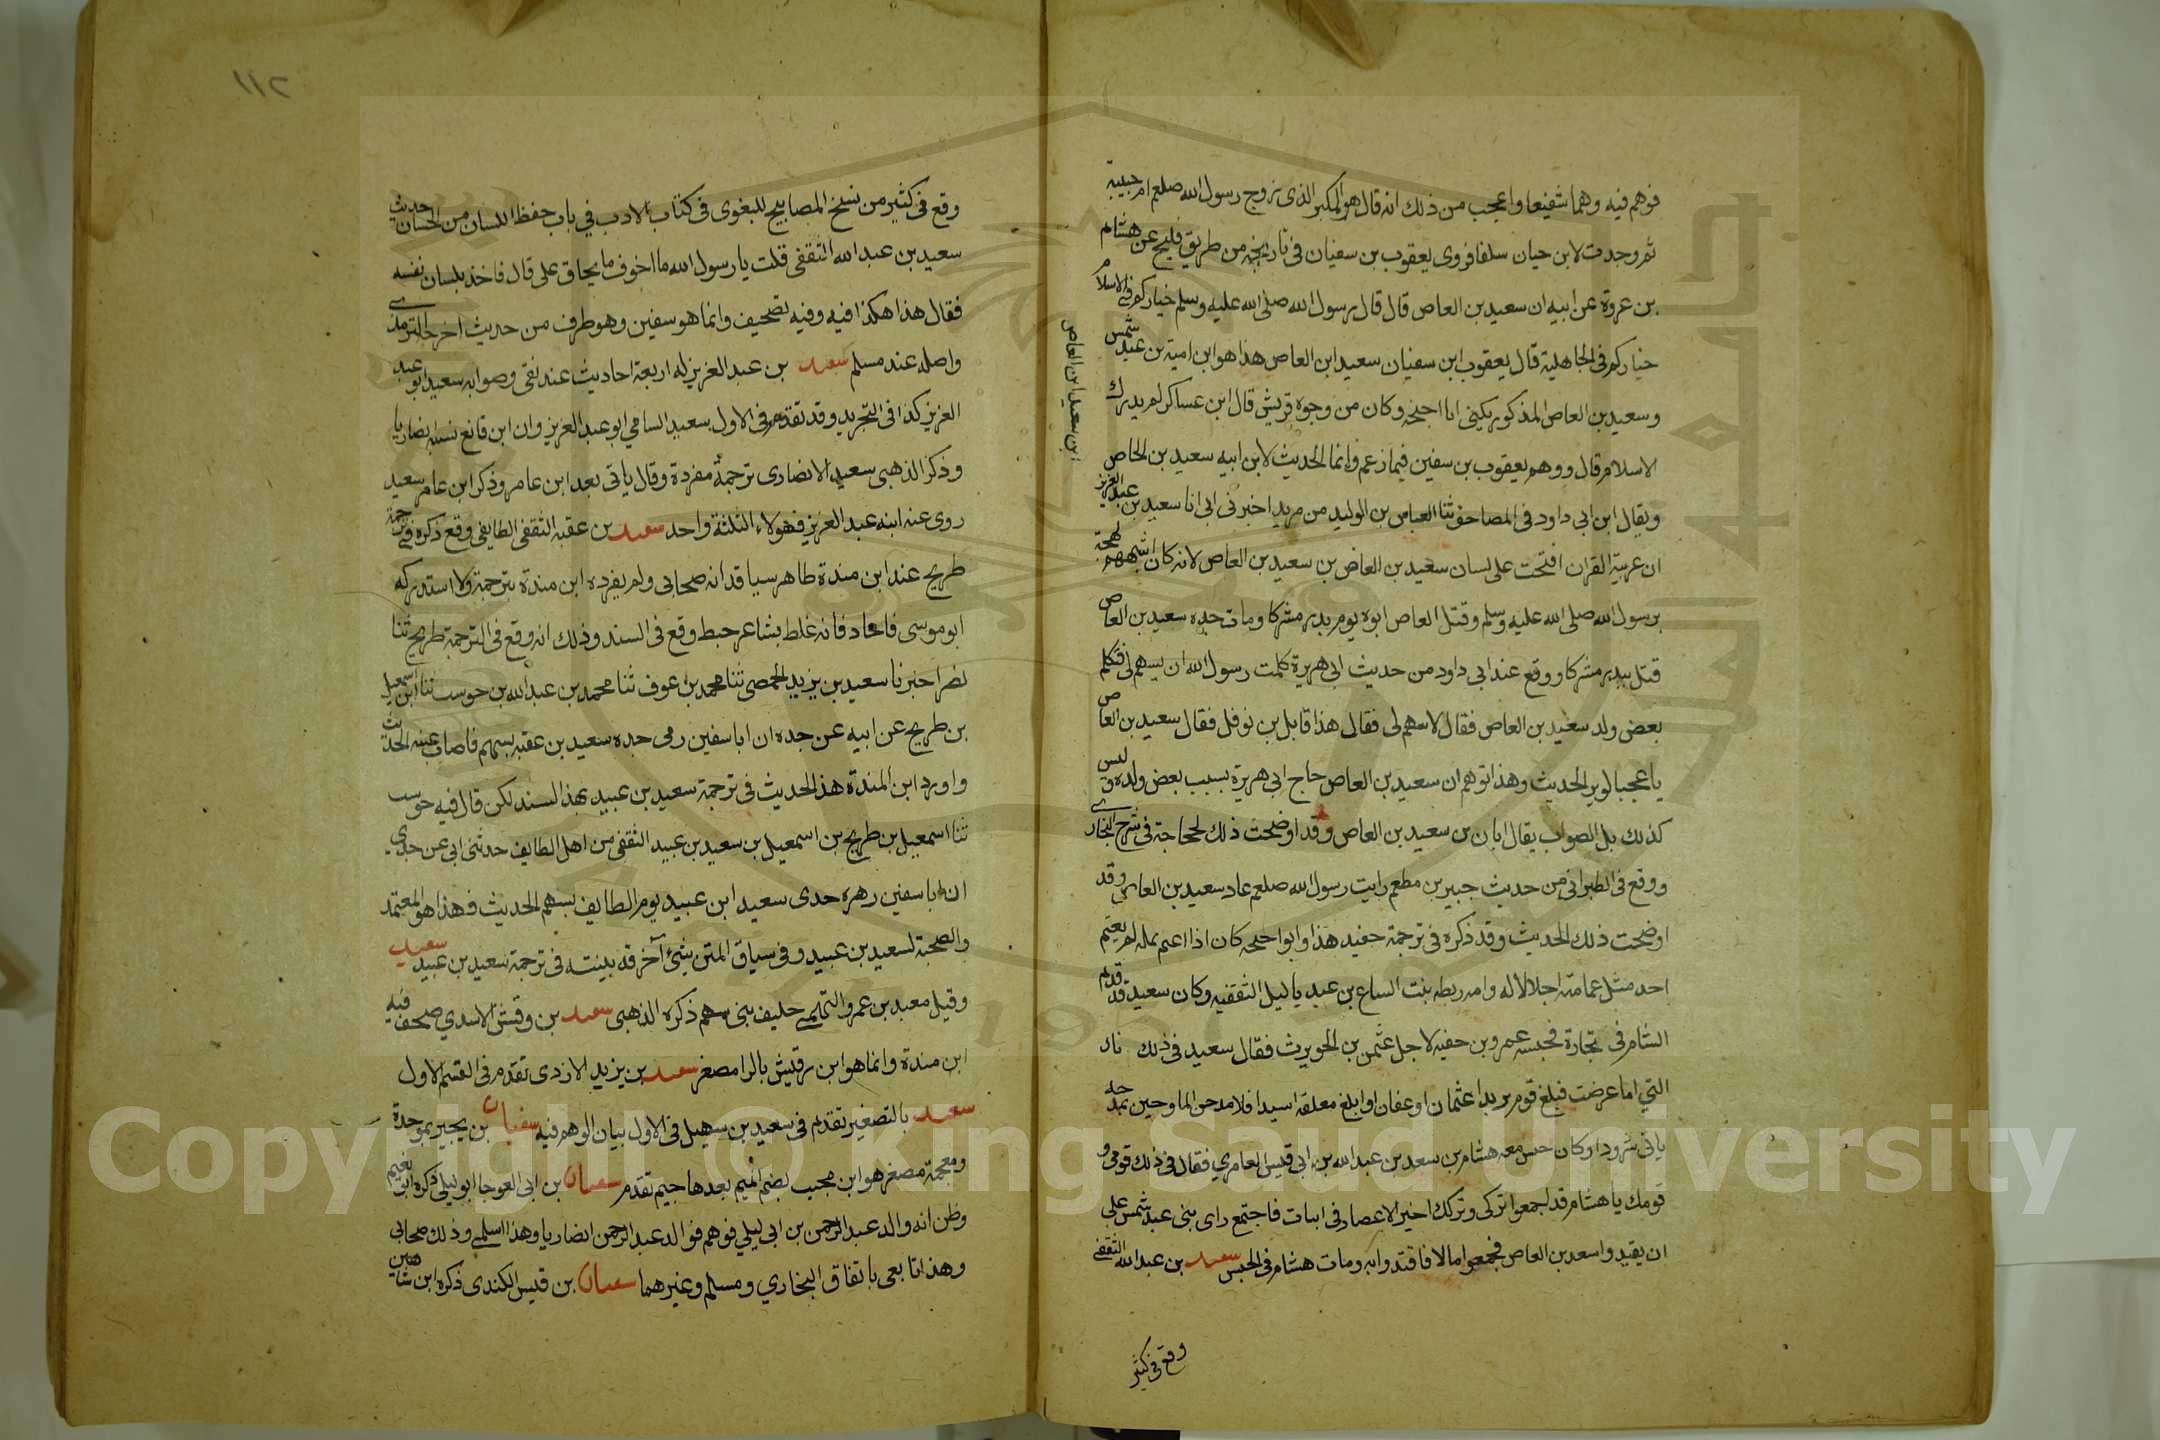 فوهم فيه وهما شفيعا واعجب من ذلك انه قال هو المكبر الذى تزوج رسول الله صلعم ام حبيبة
ثم وجدت لابن حيان سلفا فروى يعقوب بن سفيان فى تاريخه من طريق فليح عن هشام
بن عروة عن ابيه ان سعيد بن العاص قال قال رسول الله صلى الله عليه وسلم خياركم فى الاسلام
خياركم فى الجاهلية قال يعقوب ابن سفيان سعيد ابن العاص هذا هو ابن امية بن عبد شمس
ابن سعيد ابن العاص
وسعيد بن العاص المذكور يكنى ابا احيحه وكان من وجوه قريش قال ابن عساكر لم يدرك
الاسلام قال ووهم يعقوب بن سفين فيما زعم وانما الحديث لابن ابيه سعيد بن العاص
ويقال ابن ابى داود فى المصاحف ثنا العباس بن الوليد من مريد اخبرنى ابى انا سعيد بن عبد العزيز
ان عربية القران افتحت على لسان سعيد بن العاص بن سعيد بن العاص لانه كان اشبههم لهجة
برسول الله صلى الله عليه وسلم وقتل العاص ابوه يوم بدر مشركا ومات جده سعيد بن العاص
قتل ببدر مشركا ووقع عند ابى داود من حديث ابى هريرة كلمت رسول الله ان يسهم لى فتكلم
بعض ولد سعيد بن العاص فقال لا سهم لى فقال هذا قابل بن نوفل فقال سعيد بن العاص
يا عجبا لوبر الحديث وهذا توهم ان سعيد بن العاص حاج ابى هريرة بسبب بعض ولده وليس
كذلك بل الصواب يقال ابان بن سعيد بن العاص وقد اوضحت ذلك لحجاجة فى شرح البخارى
ووقع فى الطبرانى من حديث جبير بن مطعم رايت رسول الله صلعم عاد سعيد بن العاص وقد
اوضحت ذلك الحديث وقد ذكره فى ترجمة حفيد هذا وابو احيحه كان اذا اعتم بمكة لم يعتم
احد مثل عمامته اجلالا له وامه ريطه بنت البياع بن عبد ياليل الثقفيه وكان سعيد قد قدم
الشام فى تجارة فحبسه عمرو بن حفيه لاجل عثمن بن الحويرث فقال سعيد فى ذلك
التى اما عرضت فبلغ قوم يريدا عثمان او عفان او ابلغ مغلقه اسيدا
وكان حبس معه هشام بن سعد بن عبد الله بن ابى قيس العامري فقال فى ذلك قومى و
قومك يا هشام قد اجمعوا تركى وتركك اخير الاعصار فى ابيات فاجتمع راى بنى عبد شمس على
ان يفيدوا سعد بن العاص فجمعوا مالا فاقتدوا به ومات هشام فى الحبس سعيد بن عبد الله الثقفى
وقع فى كثير
١١٢
وقع فى كثير من نسخ المصابيح للبغوى فى كتاب الادب فى باب حفظ اللسان من الحسان حديث
سعيد بن عبد الله الثقفى قلت يا رسول الله ما اخوف ما يخاف على قال فاخذ بلسان نفسه
فقال هذا هكذا فيه وفيه تصحيف وانما هو سفين وهو طرف من حديث اخرجه الترمذى
واصله عند مسلم سعيد بن عبد العزيز له اربعة احاديث عند بقى وصوابه سعيد ابو عبد
العزيز كذا فى التجريد وقد تقدم فى الاول سعيد السامى ابو عبد العزيز وان ابن قانع نسبه انصاريا
وذكر الذهبى سعيد الانصارى ترجمة مفردة وقال ياتى بعد ابن عامر وذكر ابن عامر سعيد
روى عنه ابنه عبد العزيز فهولاء الثلثة واحد سعيد بن عقبه الثقفى الطايفى وقع ذكره فى ترجمة
طريح عند ابن مندة ظاهر سياقه انه صحابى ولم يفرده ابن مندة بترجمة ولا استدركه
ابو موسى فاعاد فانه غلط وقع فى السند وذلك انه وقع فى الترجمة طريح ثنا
نصر اخبرنا سعيد بن يزيد الحمصى ثنا محمد بن عوف ثنا محمد بن عبد الله بن حوست ثنا ابن اسمعيل
بن طريح عن ابيه عن جده ان ابا سفين رمى جده سعيد بن عقبه بسهم فاصاب عينه الحديث
واورد ابن المندة هذا الحديث فى ترجمة سعيد بن عبيد بهذا السند لكن قال فيه حوست
ثنا اسمعيل بن طريح بن اسمعيل بن سعيد بن عبيد الثقفى من اهل الطايف حدثنى ابى عن جدى
ان ابا سفين رهره جدى سعيد ابن عبيد يوم الطايف بسهم الحديث فهذا هو المعتمد
والصحبة لسعيد بن عبيد وفى سياق المتن شئ آخر قد بينته فى ترجمة سعيد بن عبيد سعيد
وقيل معبد بن عمرو التميمى حليف بنى سهم ذكره الذهبى سعيد بن وقش الاسدي صحف فيه
ابن مندة وانما هو ابن رقيش بالرا مصغر سعيد بن يزيد الازدى تقدم فى القسم الاول
سعيد بالتصغير تقدم فى سعيد بن سهيل فى الاول بيان الوهم فيه سفيان بن بجير بموحدة
ومعجمة مصغر هو ابن مجيب بضم الميم بعدها جيم تقدم سفيان بن ابى العوجا ابو ليلى ذكره ابى نعيم
وظن انه والد عبد الرحمن بن ابى ليلى فوهم فوالد عبد الرحمن انصاريا وهذا اسلمى وذلك صحابى
وهذا تابعى باتفاق البخاري ومسلم وغيرهما سفيان بن قيس الكندى ذكره ابن شاهين
Copyright © King Saud University